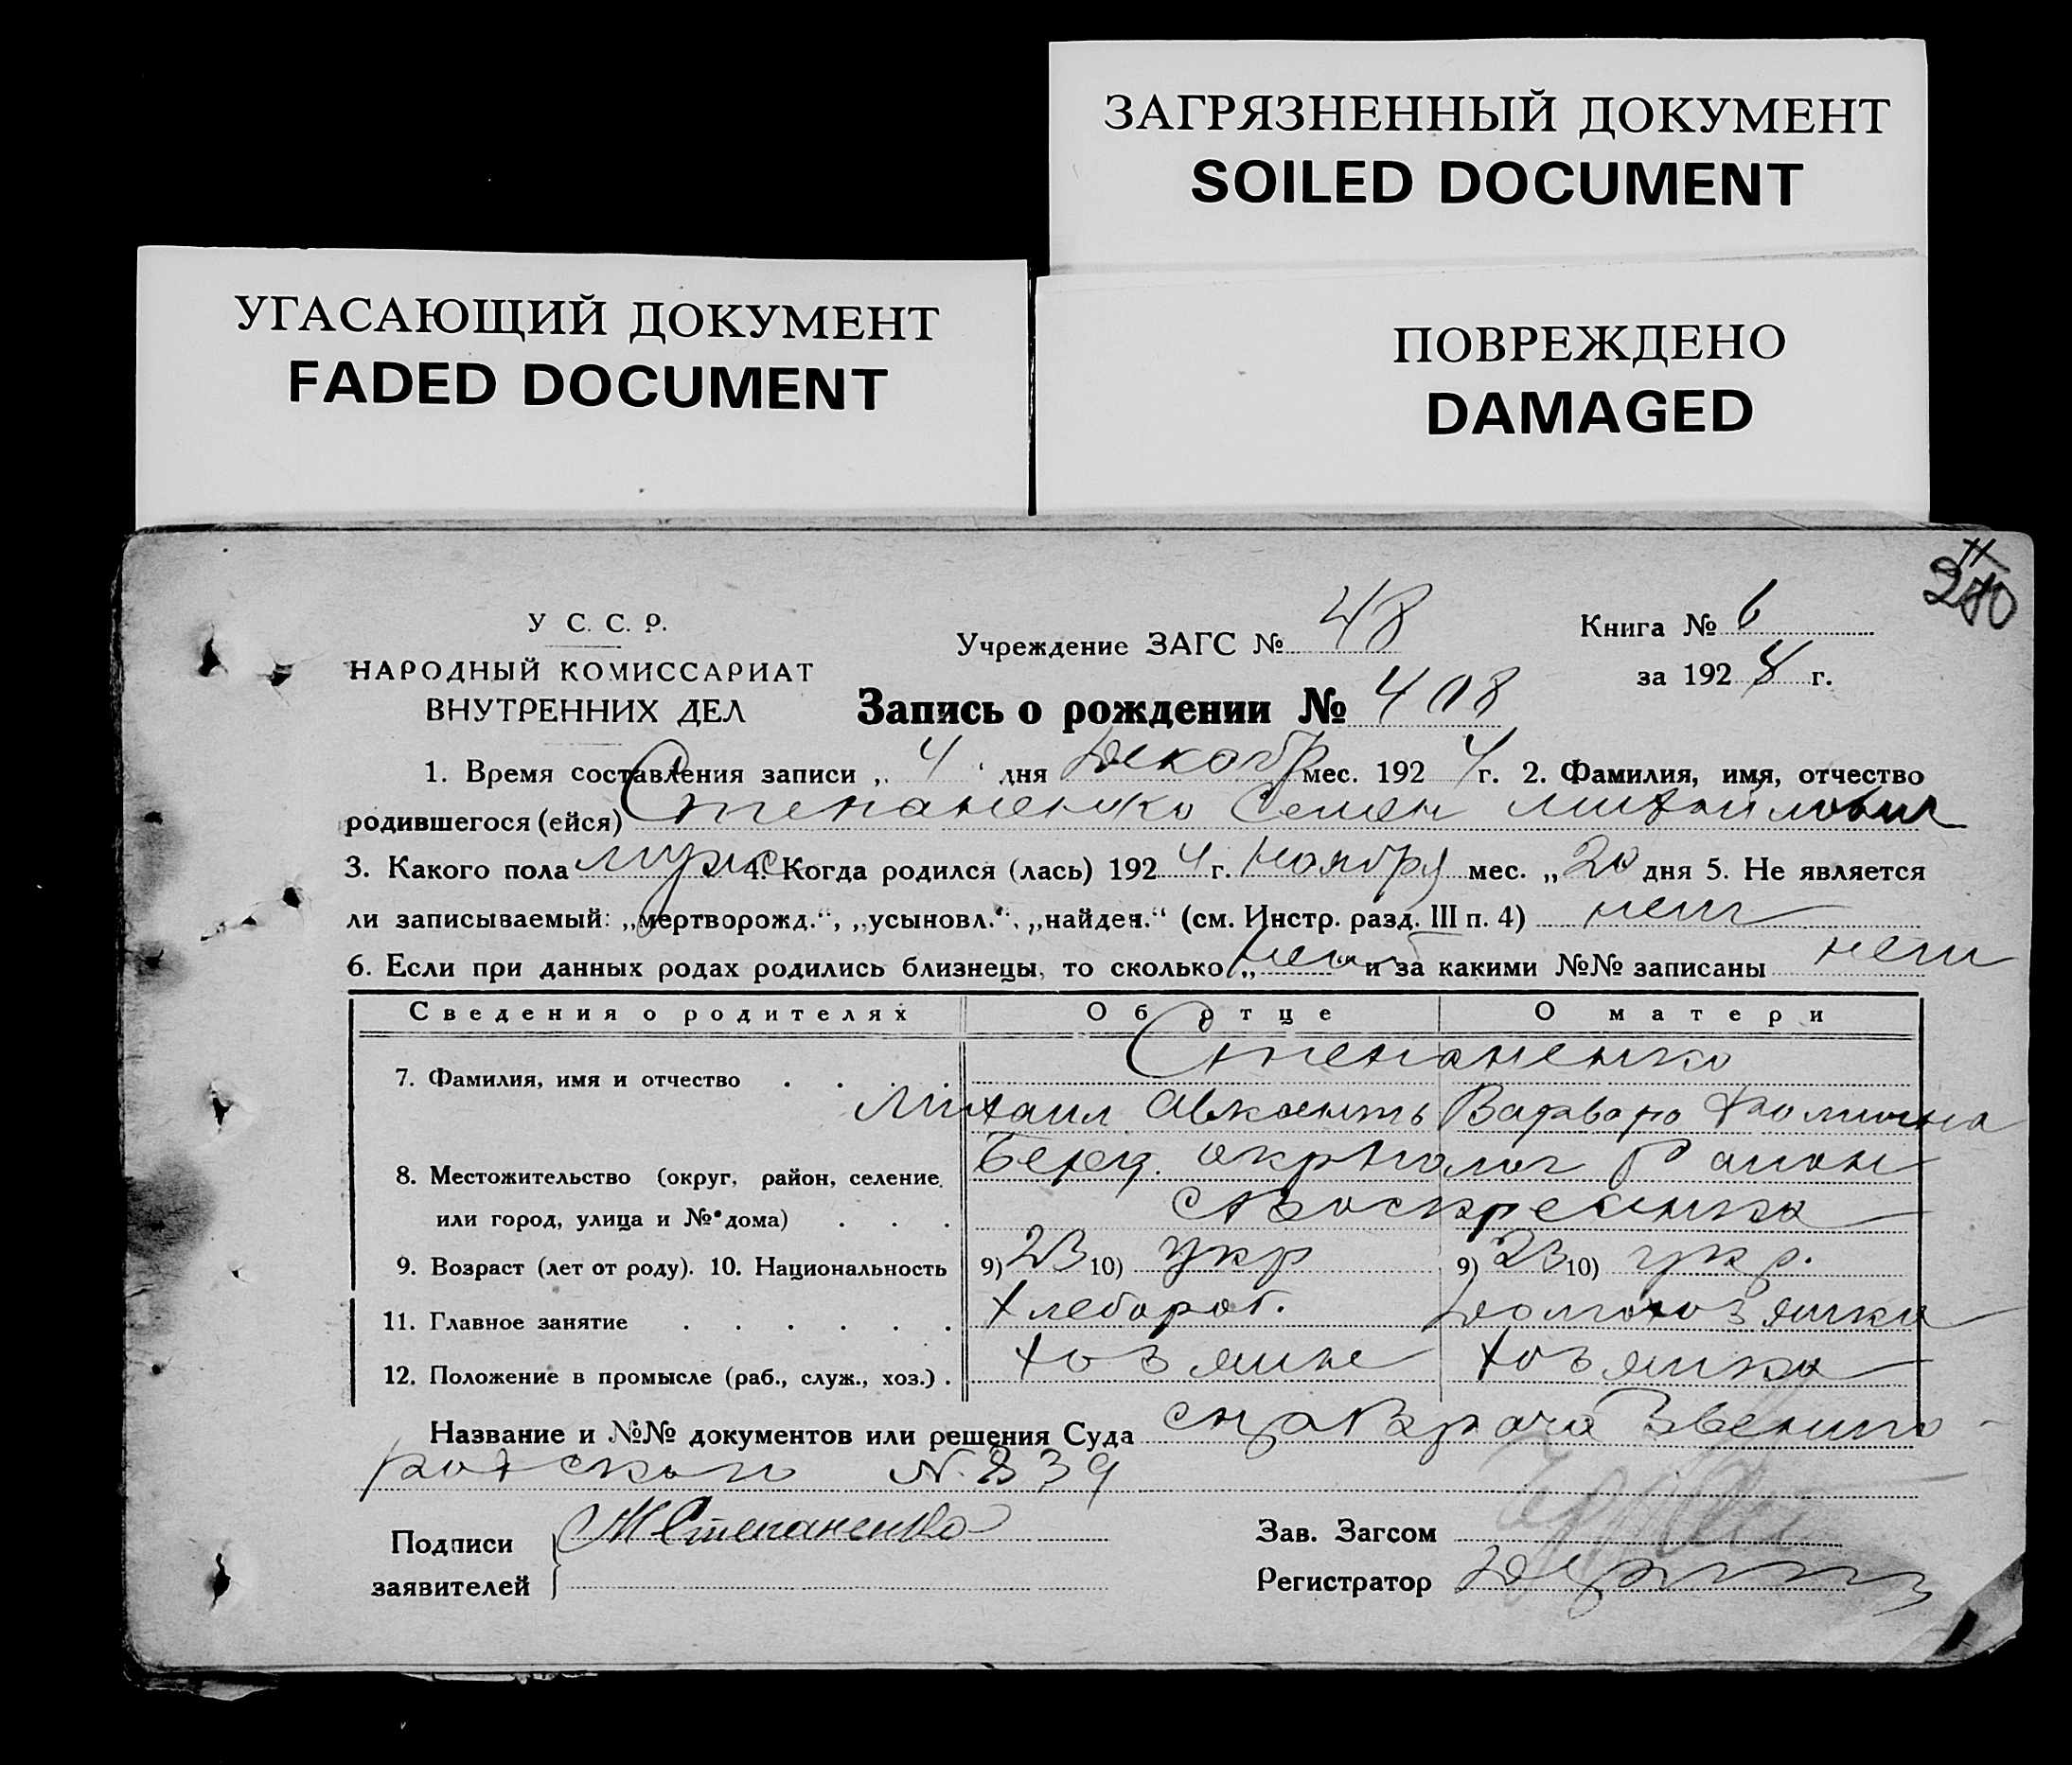 ЗАГРЯЗНЕННЫЙ ДОКУМЕНТ
SOILED DOCUMENT
УГАСАЮЩИЙ ДОКУМЕНТ
FADED DOCUMENT
ПОВРЕЖДЕНО
DAMAGED
У С. С. Р.
НАРОДНЫЙ КОМИССАРИАТ
ВНУТРЕННИХ ДЕЛ
Учреждение ЗАГС № 48
Книга № 6
за 1924 г.
Запись о рождении № 408
1. Время составления записи „ 4 " дня Декабр мес. 1924 г. 2. Фамилия, имя, отчество
родившегося (ейся) Степаненко Семен Михайлович
3. Какого пола муж 4. Когда родился (лась) 1924 г. Ноября мес. „ 20 дня 5. Не является
ли записываемый: „мертворожд.“, „усыновл.“, „найден.“ (см. Инстр. разд. III п. 4) нет
6. Если при данных родах родились близнецы, то сколько „ нет “ и за какими №№ записаны нет
Сведения о родителях Об отце О матери
7. Фамилия, имя и отчество Степаненко
Михаил Варвара
8. Местожительство (округ, район, селение Район
или город, улица и № дома)
9. Возраст (лет от роду). 10. Национальность 9) 23 10) укр 9) 23 10) укр.
11. Главное занятие хлебороб. домохозяйка
12. Положение в промысле (раб., служ., хоз.) хозяин хозяйка
Название и №№ документов или решения Суда врача Звениго-
родского N. 839
Подписи
заявителей
М Степаненко
Зав. Загсом
Регистратор